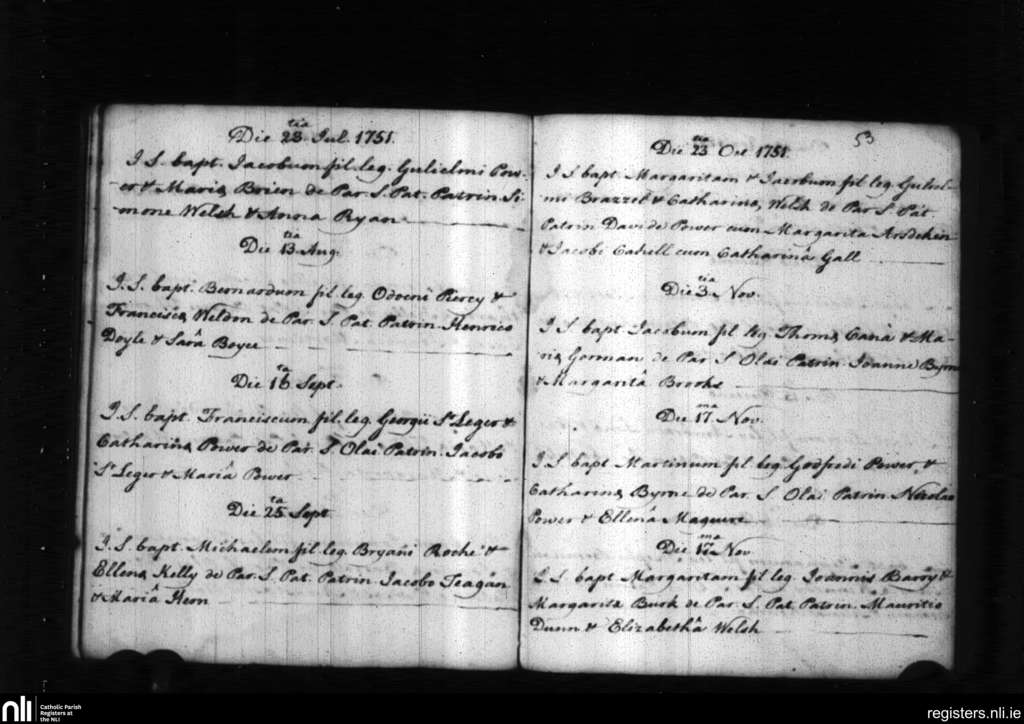 Die 23 tia Jul. 1751.
I S. bapt. Jacobum fil. leg. Gulielmi Pow-
er & Mariæ Brien de Par S. Pat. Patrin Si-
mone Welsh & Anna Ryan
Die 13 tia Aug.
I. S. bapt. Bernardum fil leg. Odoeni
Franciscæ Weldon de Par. S. Pat Patrin Henrico
Doyle & Sarâ Boyce
Die 16 ta Sept.
I. S. bapt. Franciscum fil. leg. Georgii St Leger &
Catharinæ Power de Par. S Olai Patrin. Jacobo
St Leger & Mariâ Power
Die 25 ta Sept
I. S. bapt. Michaelem fil leg. Bryani Roche &
Ellenæ Kelly de Par. S. Pat. Patrin Jacobo Teagan
& Mariâ Hern
53
Die 23 tia Oct 1751.
I S bapt. Margaritam & Jacobum fil leg. Guliel-
mi Brazzel & Catharinæ Welsh de Par S. Pat
Patrin Davide Power cum Margarita Arsdekin
& Jacobi Cahill cum Catharinâ Gall
Die 3 tia Nov.
I S. bapt Jacobum fil leg Thomæ & Ma-
riæ Gorman de Par S Olai Patrin. Joanne Byrn
& Margaritâ Brooks
Die 17 ma Nov.
I S. bapt Martinum fil leg. Godfredi Power, &
Catharinæ Byrne de Par. S. Olai Patrin Nicolao
Power & Ellenâ Maguire
Die 17 ma Nov
I S bapt Margaritam fil leg. Joannis Barry &
Margaritæ Burk de Par. S. Pat. Patrin. Mauritio
Dunn & Elizabethâ Welsh
nli
Catholic Parish
Registers at
the NLI
registers.nli.ie